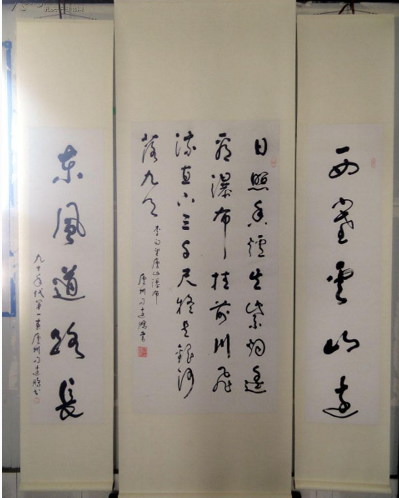 西塞雲山遠
日照香爐生紫烟遥
看瀑布挂前川飛
流直下三千尺疑是銀河
落九天
李白望廬山瀑布
東風道路長
九十年代第一春廬州